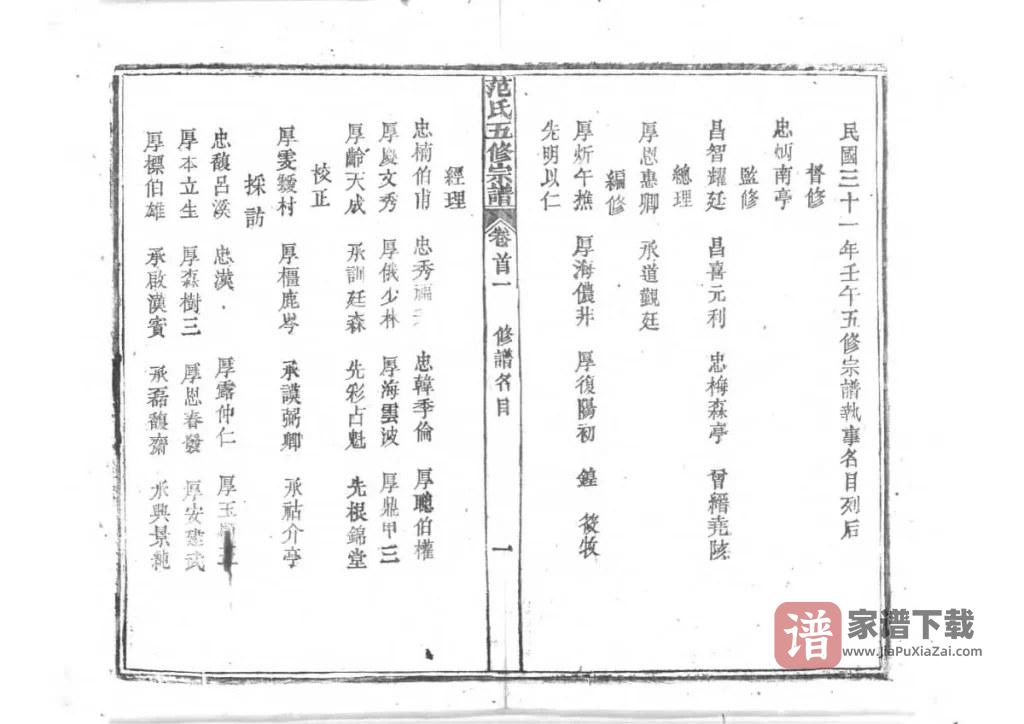 民國三十一年壬午五修宗譜執事名目列后
督修
忠炳南亭
監修
昌智耀廷 昌喜元利 忠梅森亭 曾縉堯陔
總理
厚恩惠卿 承道觀廷
編修
厚炘午樵 厚海儂井 厚復陽初 鍠 筱牧
先明以仁
范氏五修宗譜 卷首一 修譜名目 一
經理
忠楠伯甫 忠秀 忠韓季倫 厚聰伯權
厚慶文秀 厚俄少林 厚海雲波 厚鼎甲三
厚齡天成 承訓廷森 先彩占魁 先根錦堂
校正
厚雯靉村 厚橿鹿岑 承謨弼卿 承祜介亭
採訪
忠馥呂溪 忠漢 厚露仲仁 厚玉
厚本立生 厚森樹三 厚恩春發 厚安建武
厚標伯雄 承啟漢賓 承磊馥齋 承興景
谱
家谱下载
www.JiaPuXiaZai.com